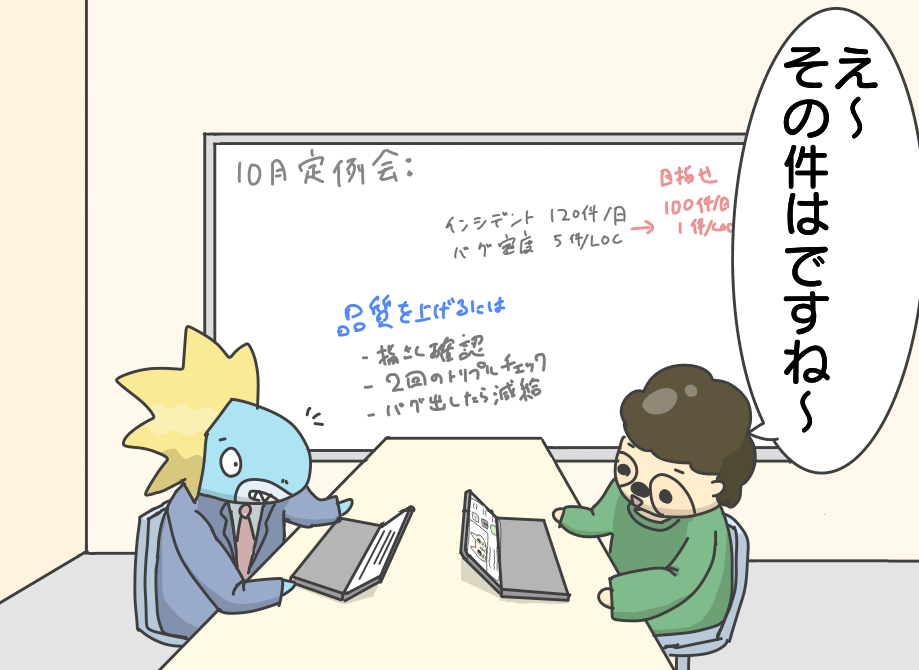 え〜
その件はですね〜
10月定例会:
目指せ
インシデント 120件/日
バグ密度 5件/LOC
→
100件/日
1件/LOC
品質を上げるには
- 指さし確認
- 2回のトリプルチェック
- バグ出したら減給